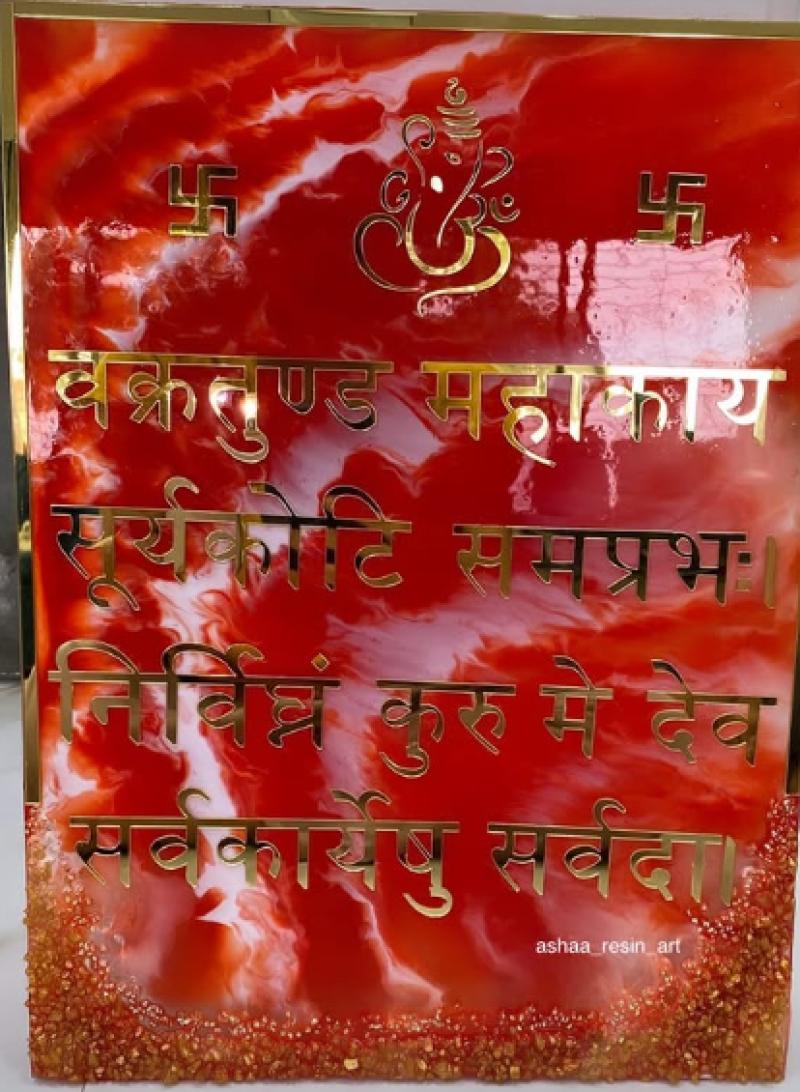 वक्रतुण्ड महाकाय
सूर्यकोटि समप्रभः।
निर्विघ्नं कुरु मे देव
सर्वकार्येषु सर्वदा।
ashaa_resin_art